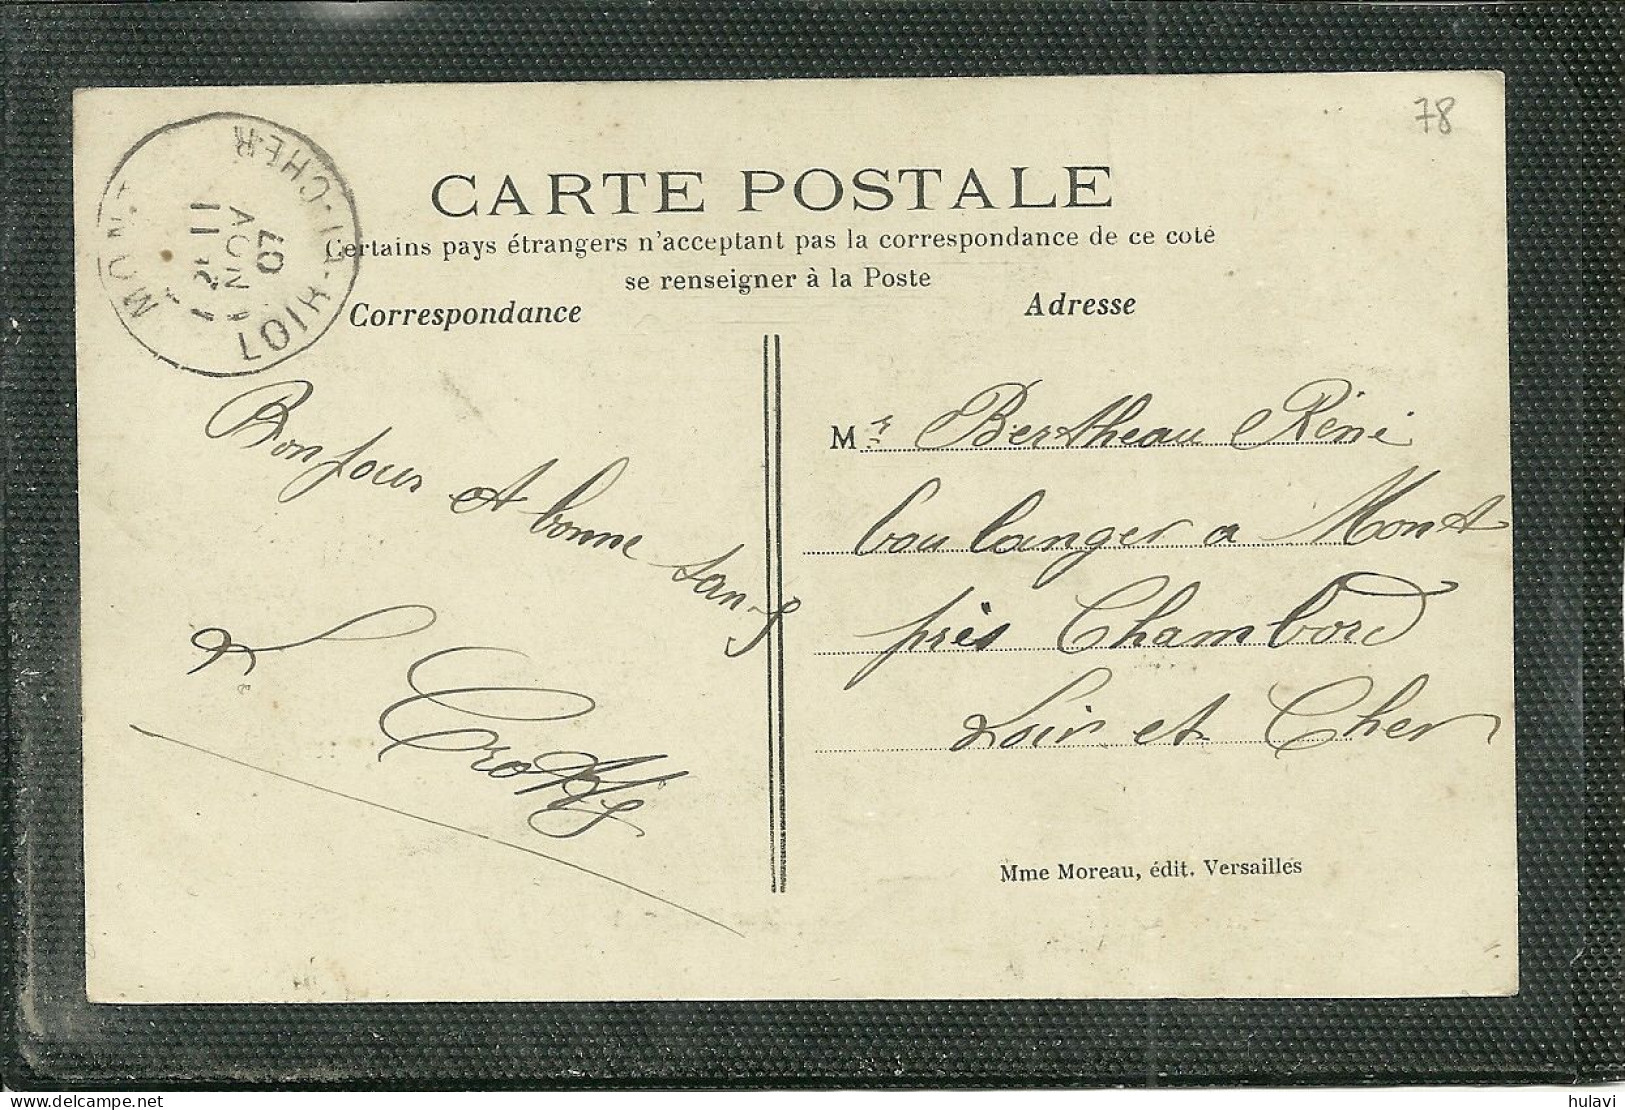 78
CARTE POSTALE
Certains pays étrangers n'acceptant pas la correspondance de ce coté
se renseigner à la Poste
Correspondance
Adresse
MONT
LOIR-ET-CHER
11
AOUT
07
Bonjour et bonne
L. Crotty
Mr Bertheau Réné
boulanger a Mont
près Chambord
Loir et Cher
Mme Moreau, édit. Versailles
hulavi